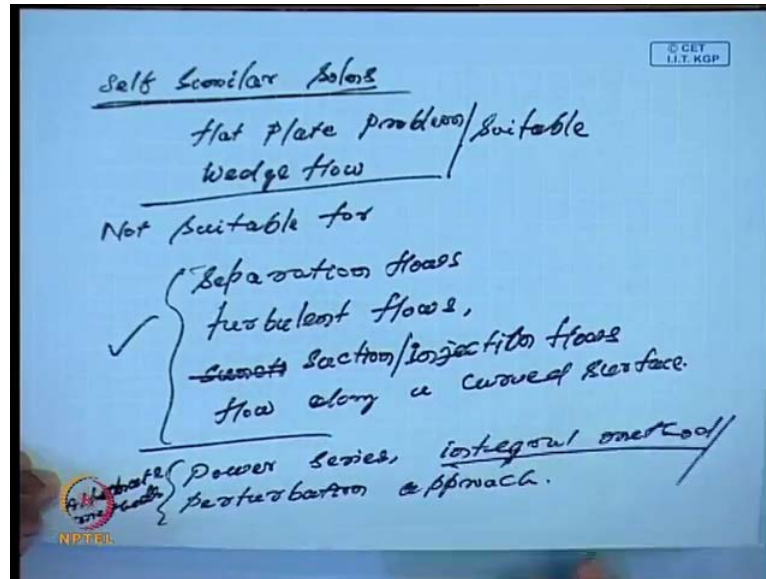 © CET
I.I.T. KGP
Self Similar Solns
flat plate problem / Suitable
Wedge flow
Not suitable for
Separation flows
turbulent flows,
Suction/injection flows
flow along a curved surface.
Power series, integral method
perturbation approach.
NPTEL